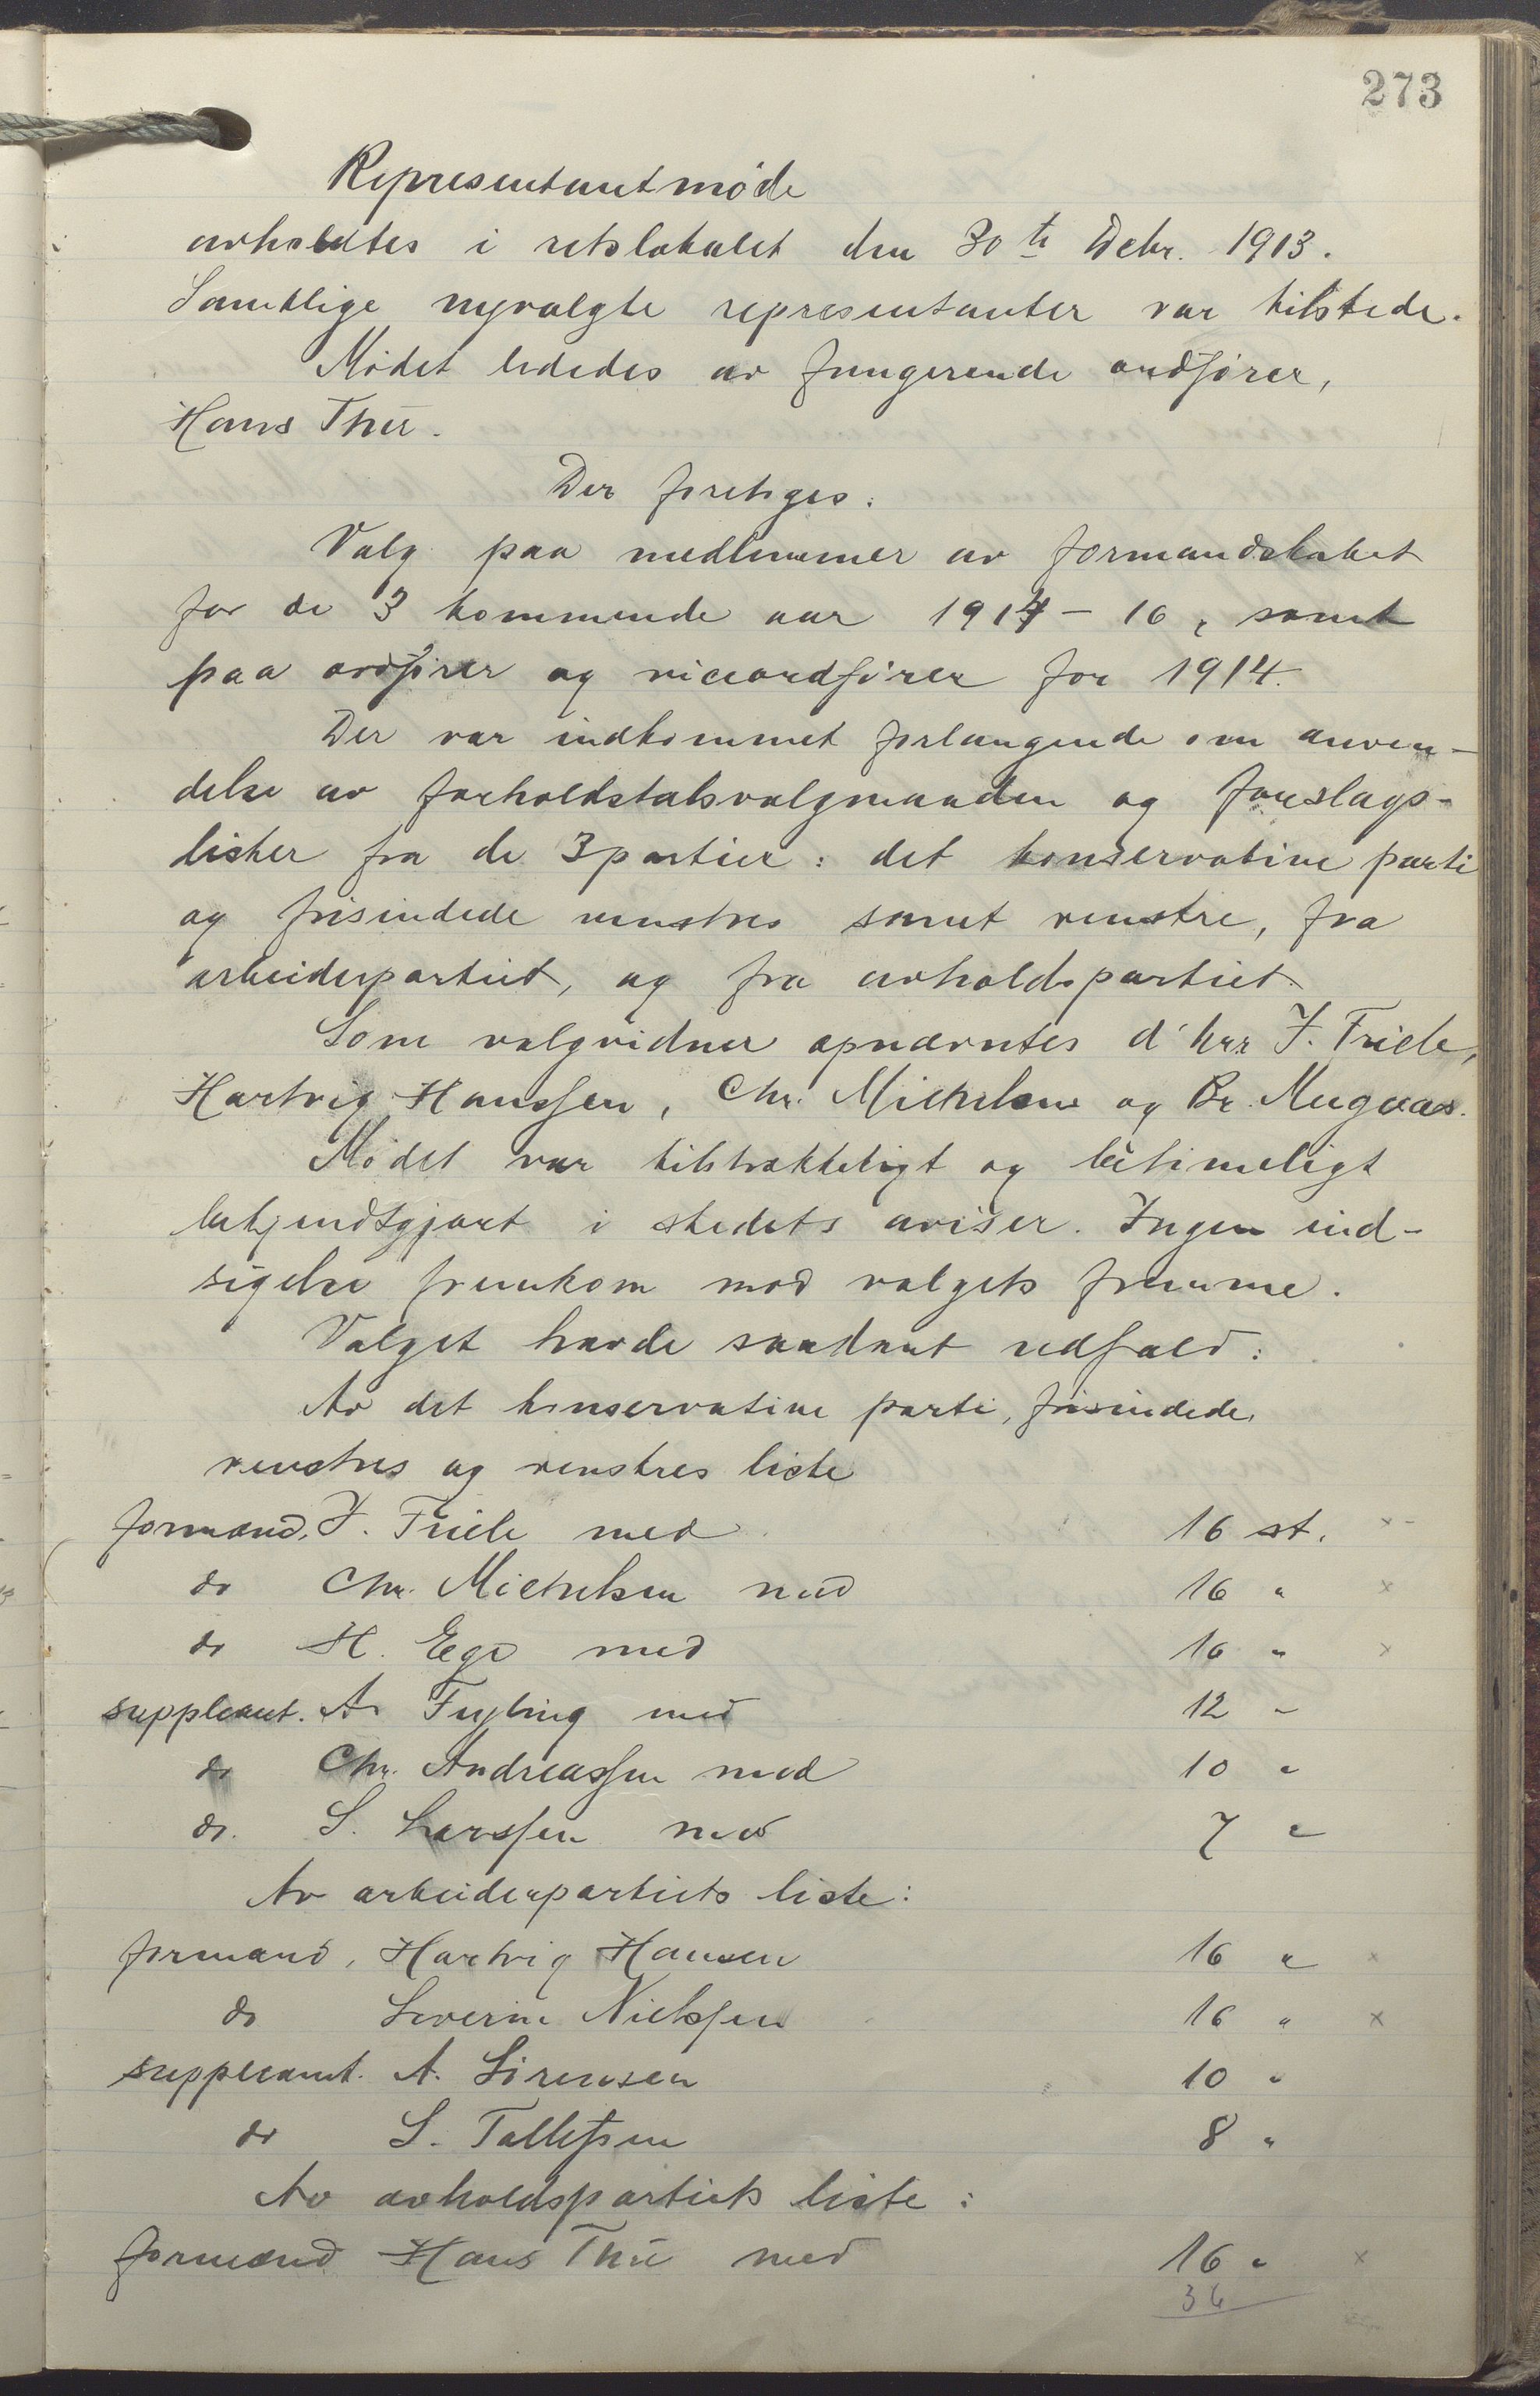 273
Representantmøde
avholdtes i retslokalet den 30te Debr. 1913.
Samtlige nyvalgte representanter var tilstede.
Mødet lededes av fungerende ordfører,
Hans Thu.
Der foretoges:
Valg paa medlemmer av formandskabet
for de 3 kommende aar 1914 - 16, samt
paa ordfører og viceordfører for 1914.
Der var indkommet forlangende om anven-
delse av forholdstalsvalgmaaden og forslags-
lister fra de 3 partier: det konservative parti
og frisindede venstres samt venstre, fra
arbeiderpartiet, og fra avholdspartiet.
Som valgvidner opnævntes d'hrr J. Friele,
Hartvig Hanssen, Chr. Michelsen og Br.
Mødet var tilstrækkeligt og betimeligt
bekjendtgjort i stedets aviser. Ingen ind-
sigelse fremkom mod valgets fremme.
Valget havde saadant udfald:
Av det konservative parti, frisindede
venstres og venstres liste
formand, J. Friele med 16 st. x
do Chr. Michelsen med 16 " x
do H. Ege med 16 " x
suppleant. A. Fugling med 12 "
do Chr. Andreassen med 10 "
do. S. Larssen med 7 "
Av arbeiderpartiets liste:
formand, Hartvig Hansen 16 " x
do Severin Nielssen 16 " x
suppleant. A. Sørensen 10 "
do S. Tallefsen 8 "
Av avholdspartiets liste:
formand Hans Thu med 16 " x
36